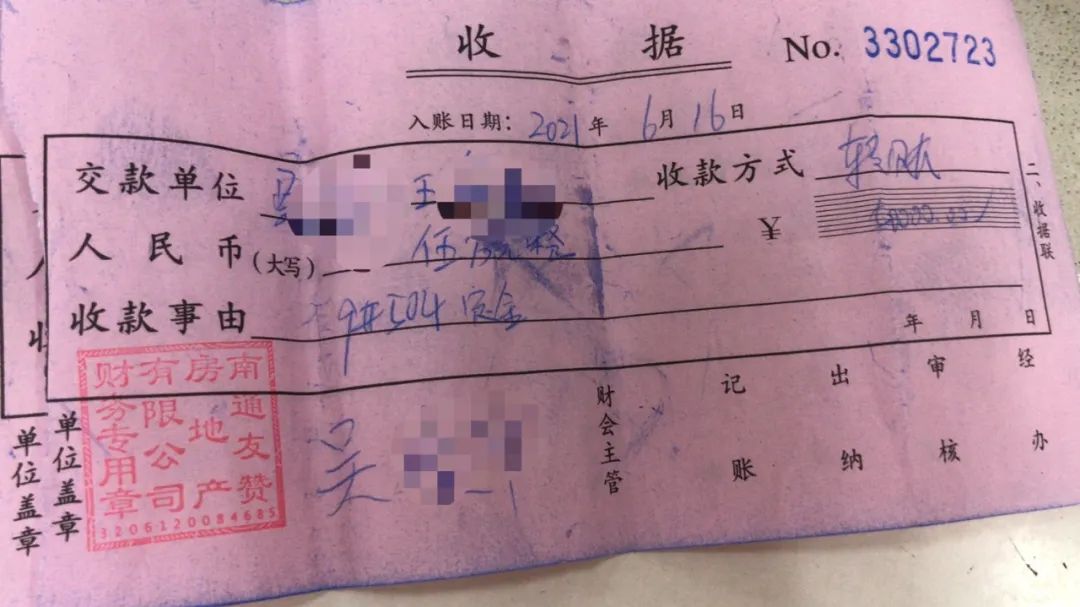 收 据 No. 3302723
入账日期: 2021年 6月16日
交款单位 王 收款方式 转账
人民币(大写) 伍万元整 ¥
收款事由 9#504 定金
年 月 日
二、收据联
财会主管 记账 出纳 审核 经办
单位盖章
单位盖章
吴
南通友赞房地产有限公司财务专用章
3206120084685